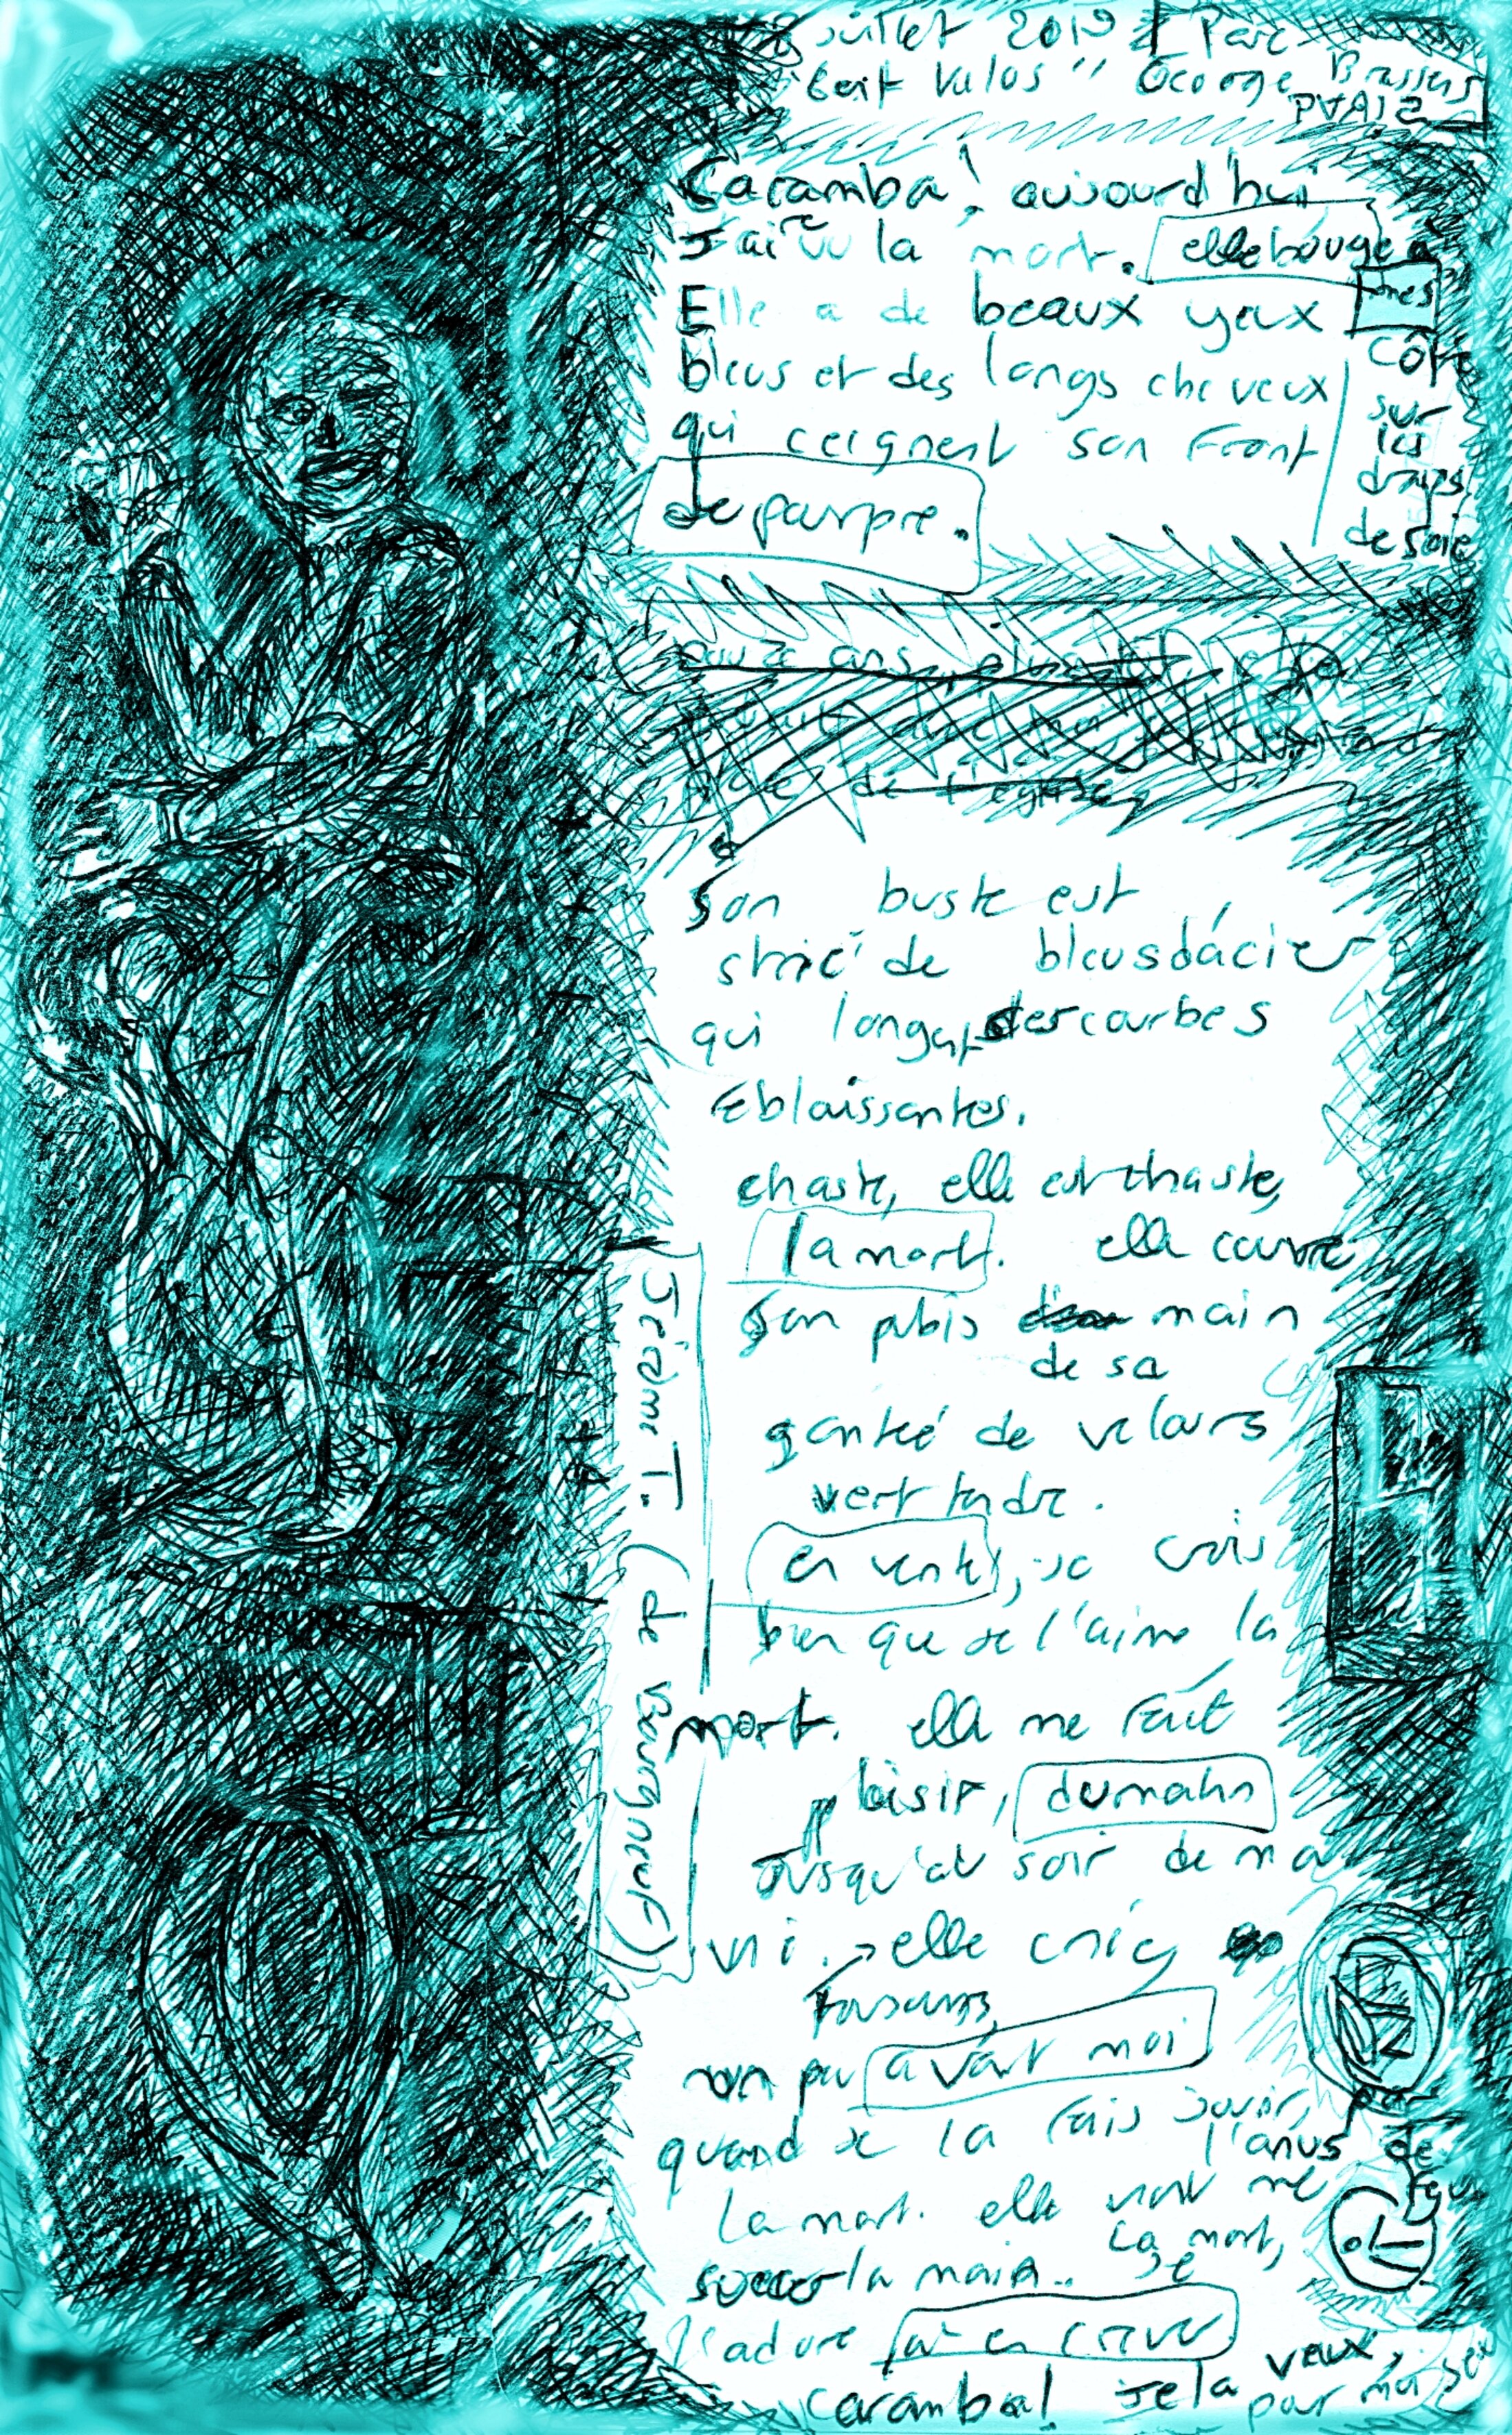 juillet 2019 Parc
George Brassens
Caramba! aujourd'hui
J'ai vu la mort. elle bouge à
mes
Elle a de beaux yeux
côtés
bleus et des longs cheveux
sur
les
qui ceignent son front
draps
de pourpre.
de soie
ans,
de l'église
Son buste est
strié de bleus d'acier
qui longent des courbes
Eblouissantes.
chaste, elle est chaste,
la mort. elle couvre
son pubis main
de sa
ganteé de velours
vert tendre.
en vente, je crois
bien que je l'aime la
mort. elle me fait
plaisir, du matin
Jusqu'au soir de ma
vie. elle
Toujours
un peu avant moi
quand je la fais jouir, par
l'anus de
feu
La mort. elle vient me
sucer la main.. La mort,
Je
l'adore à en crever
Caramba! Je la veux,
pour moi seul
Jérôme T. (de Bourgneuf)